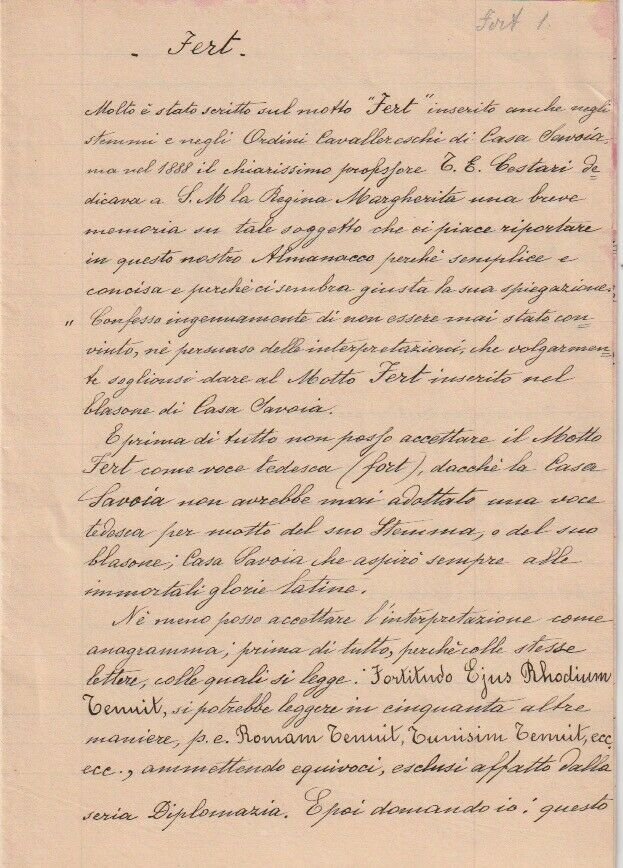 Fert 1.
- Fert -
Molto è stato scritto sul motto "Fert" inserito anche negli
stemmi e negli Ordini Cavallereschi di Casa Savoia,
ma nel 1888 il chiarissimo professore T. E. Cestari de=
dicava a S. M la Regina Margherita una breve
memoria su tale soggetto che ci piace riportare
in questo nostro Almanacco perchè semplice e
concisa e perchè ci sembra giusta la sua spiegazione:
" Confesso ingenuamente di non essere mai stato con=
vinto, nè persuaso delle interpretazioni, che volgarmen=
te soglionsi dare al Motto Fert inserito nel
blasone di Casa Savoia.
E prima di tutto non posso accettare il Motto
Fert come voce tedesca (fort), dacchè la Casa
Savoia non avrebbe mai adottato una voce
tedesca per motto del suo Stemma, o del suo
blasone; Casa Savoia che aspirò sempre alle
immortali glorie latine.
Nè meno posso accettare l'interpretazione come
anagramma; prima di tutto, perchè colle stesse
lettere, colle quali si legge: Fortitudo Ejus Rhodium
Tenuit, si potrebbe leggere in cinquanta altre
maniere, p. e. Romam Tenuit, Tunisim Tenuit, ecc.
ecc., ammettendo equivoci, esclusi affatto dalla
seria Diplomazia. E poi domando io: questo